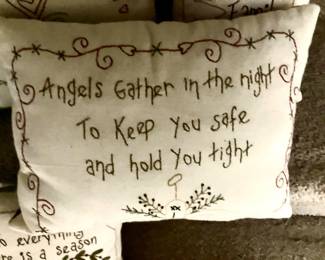 Family
Angels Gather in the night
To Keep you safe
and hold you tight
to everything
there is a season